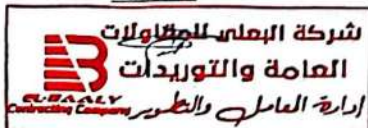 شركة البعلي للمقاولات
العامة والتوريدات
إدارة العامل والتطوير
EL-BAALY
Contracting Company